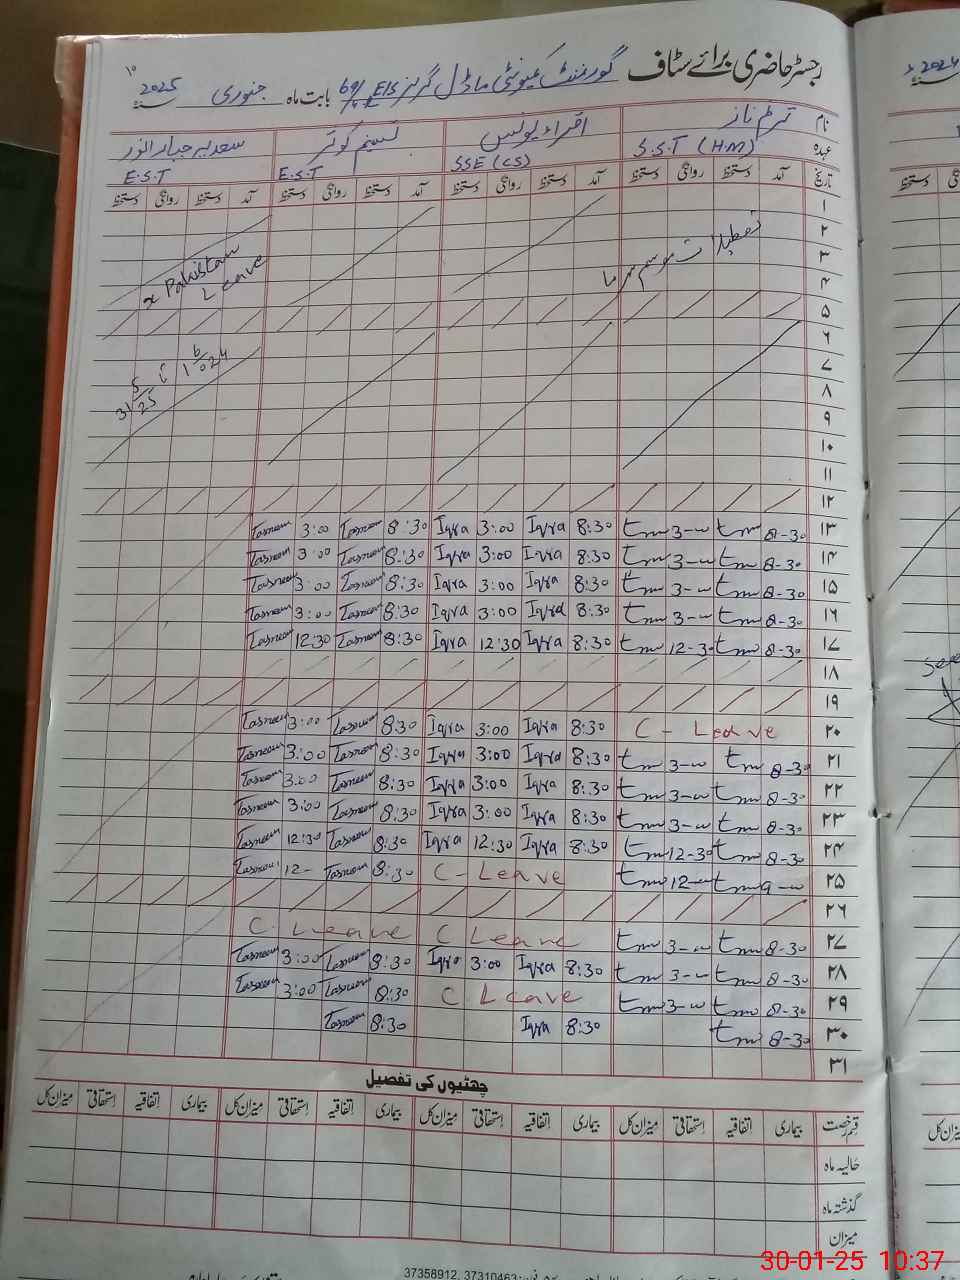 رجسٹر حاضری برائے سٹاف گورنمنٹ کمیونٹی ماڈل گرلز 69/EB بابت ماہ جنوری 2025
۱۰
نام ترنم ناز اقراء یونس تسنیم کوثر
عہدہ S.S.T (H.M) SSE (CS) E.S.T E.S.T
تاریخ آمد دستخط روانگی دستخط آمد دستخط روانگی دستخط آمد دستخط روانگی دستخط آمد دستخط روانگی دستخط
۱
۲ تعطیلات موسم سرما
۳ x Pakistan
۴ Leave
۵
۶
۷
۸
۹
۱۰
۱۱
۱۲
۱۳ 8-30 tm 3-00 tm 8:30 Iqra 3:00 Iqra 8:30 Tasneem 3:00 Tasneem
۱۴ 8-30 tm 3-00 tm 8:30 Iqra 3:00 Iqra 8:30 Tasneem 3:00 Tasneem
۱۵ 8-30 tm 3-00 tm 8:30 Iqra 3:00 Iqra 8:30 Tasneem 3:00 Tasneem
۱۶ 8-30 tm 3-00 tm 8:30 Iqra 3:00 Iqra 8:30 Tasneem 3:00 Tasneem
۱۷ 8-30 tm 12-30 tm 8:30 Iqra 12:30 Iqra 8:30 Tasneem 12:30 Tasneem
۱۸
۱۹
۲۰ C - Leave 8:30 Iqra 3:00 Iqra 8:30 Tasneem 3:00 Tasneem
۲۱ 8-30 tm 3-00 tm 8:30 Iqra 3:00 Iqra 8:30 Tasneem 3:00 Tasneem
۲۲ 8-30 tm 3-00 tm 8:30 Iqra 3:00 Iqra 8:30 Tasneem 3:00 Tasneem
۲۳ 8-30 tm 3-00 tm 8:30 Iqra 3:00 Iqra 8:30 Tasneem 3:00 Tasneem
۲۴ 8-30 tm 12-30 tm 8:30 Iqra 12:30 Iqra 8:30 Tasneem 12:30 Tasneem
۲۵ 9-00 tm 12-00 tm C - Leave 8:30 Tasneem 12- Tasneem
۲۶
۲۷ 8-30 tm 3-00 tm C Leave C. Leave
۲۸ 8-30 tm 3-00 tm 8:30 Iqra 3:00 Iqra 8:30 Tasneem 3:00 Tasneem
۲۹ 8-30 tm 3-00 tm C. Leave 8:30 Tasneem 3:00 Tasneem
۳۰ 8-30 tm 8:30 Iqra 8:30 Tasneem
۳۱
چھٹیوں کی تفصیل
قسم رخصت بیماری اتفاقیہ استحقاقی میزان کل بیماری اتفاقیہ استحقاقی میزان کل بیماری اتفاقیہ استحقاقی میزان کل بیماری اتفاقیہ استحقاقی میزان کل
حالیہ ماہ
گذشتہ ماہ
میزان
37358912, 37310463
30-01-25 10:37